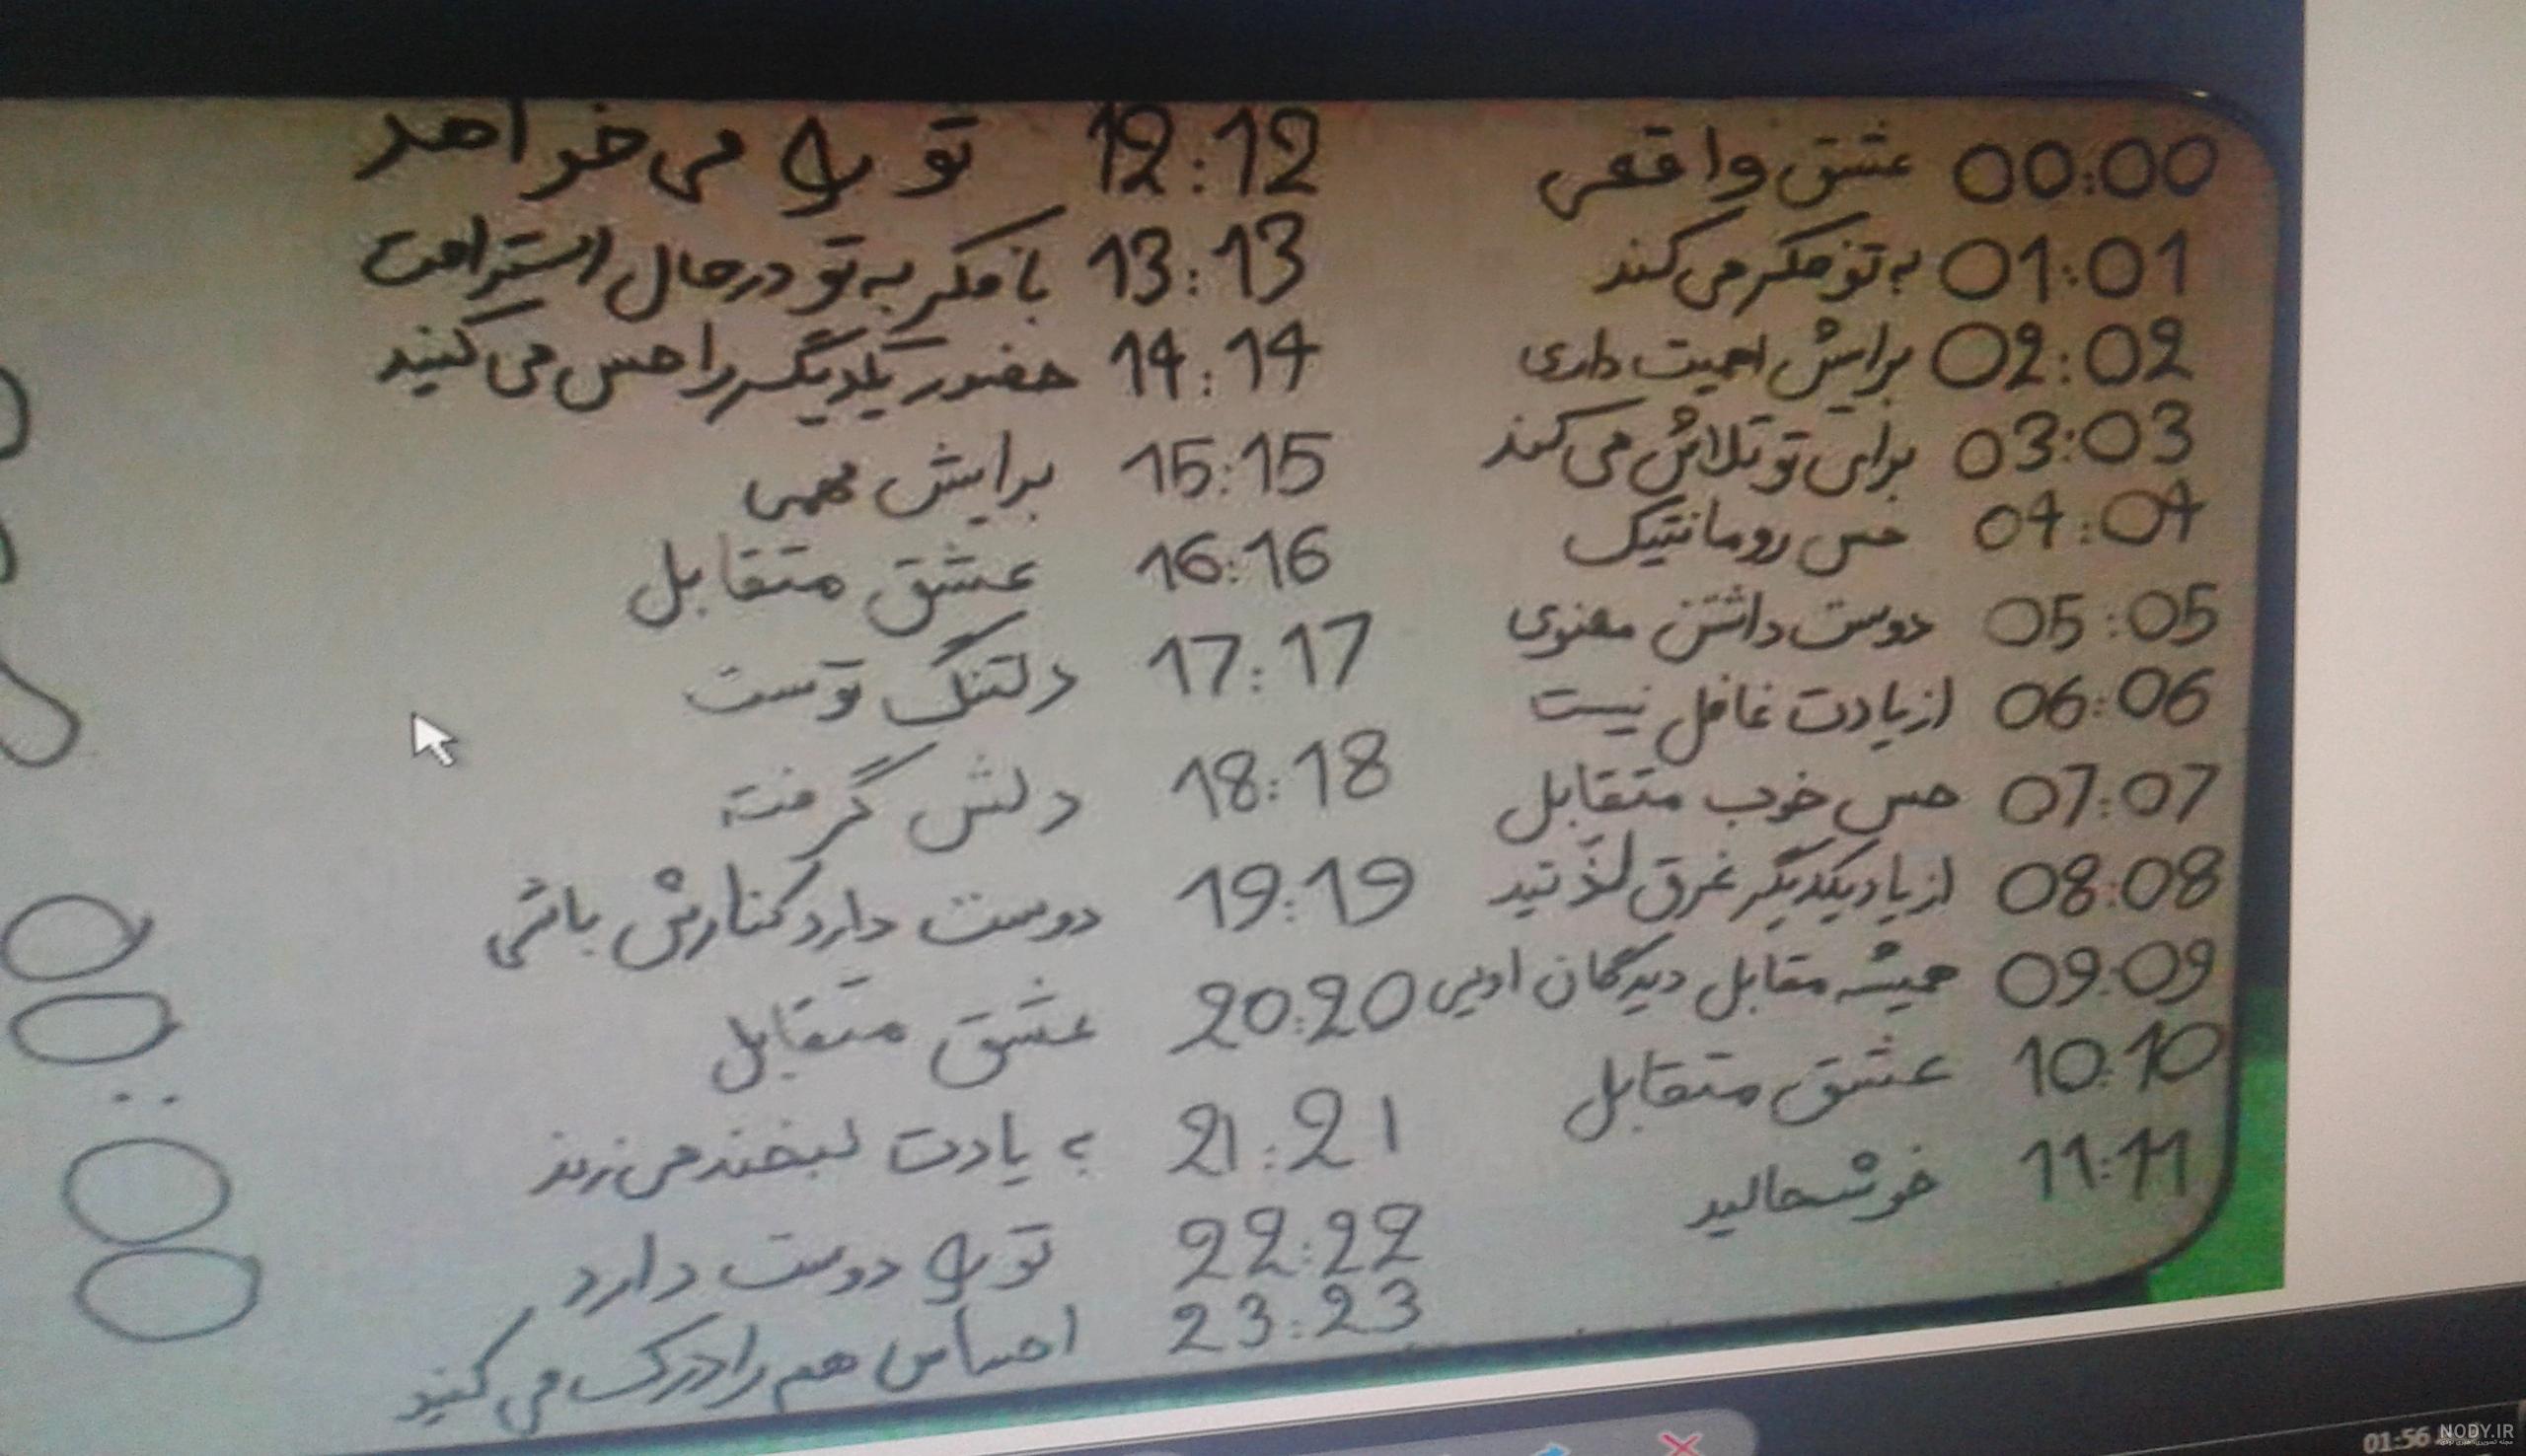 00:00 عشق واقعی
01:01 به تو فکر می کند
02:02 برایش اهمیت داری
03:03 برای تو تلاش می کند
04:04 حس رومانتیک
05:05 دوست داشتن معنوی
06:06 از یادت غافل نیست
07:07 حس خوب متقابل
08:08 از یاد یکدیگر غرق لذّتید
09:09 همیشه مقابل دیدگان اویی
10:10 عشق متقابل
11:11 خوشحالید
12:12 تو رو می خواهد
13:13 با فکر به تو در حال استراحت
14:14 حضور یکدیگر را حس می کنید
15:15 برایش مهمی
16:16 عشق متقابل
17:17 دلتنگ توست
18:18 دلش گرفته
19:19 دوست دارد کنارش باشی
20:20 عشق متقابل
21:21 به یادت لبخند می زند
22:22 تو رو دوست دارد
23:23 احساس هم را درک می کنید
01:56
NODY.IR